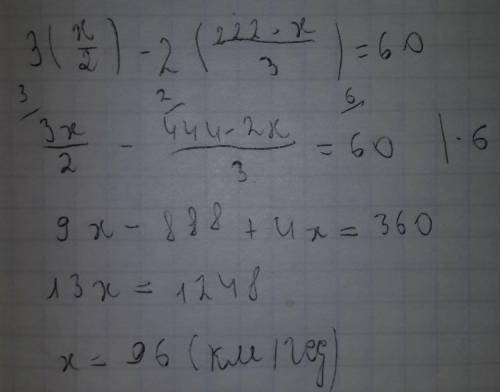 3(x/2) - 2(222-x/3) = 60
3/ 2/ 6/
3x/2 - 444-2x/3 = 60 |·6
9x - 888 + 4x = 360
13x = 1248
x = 96 (км/год)